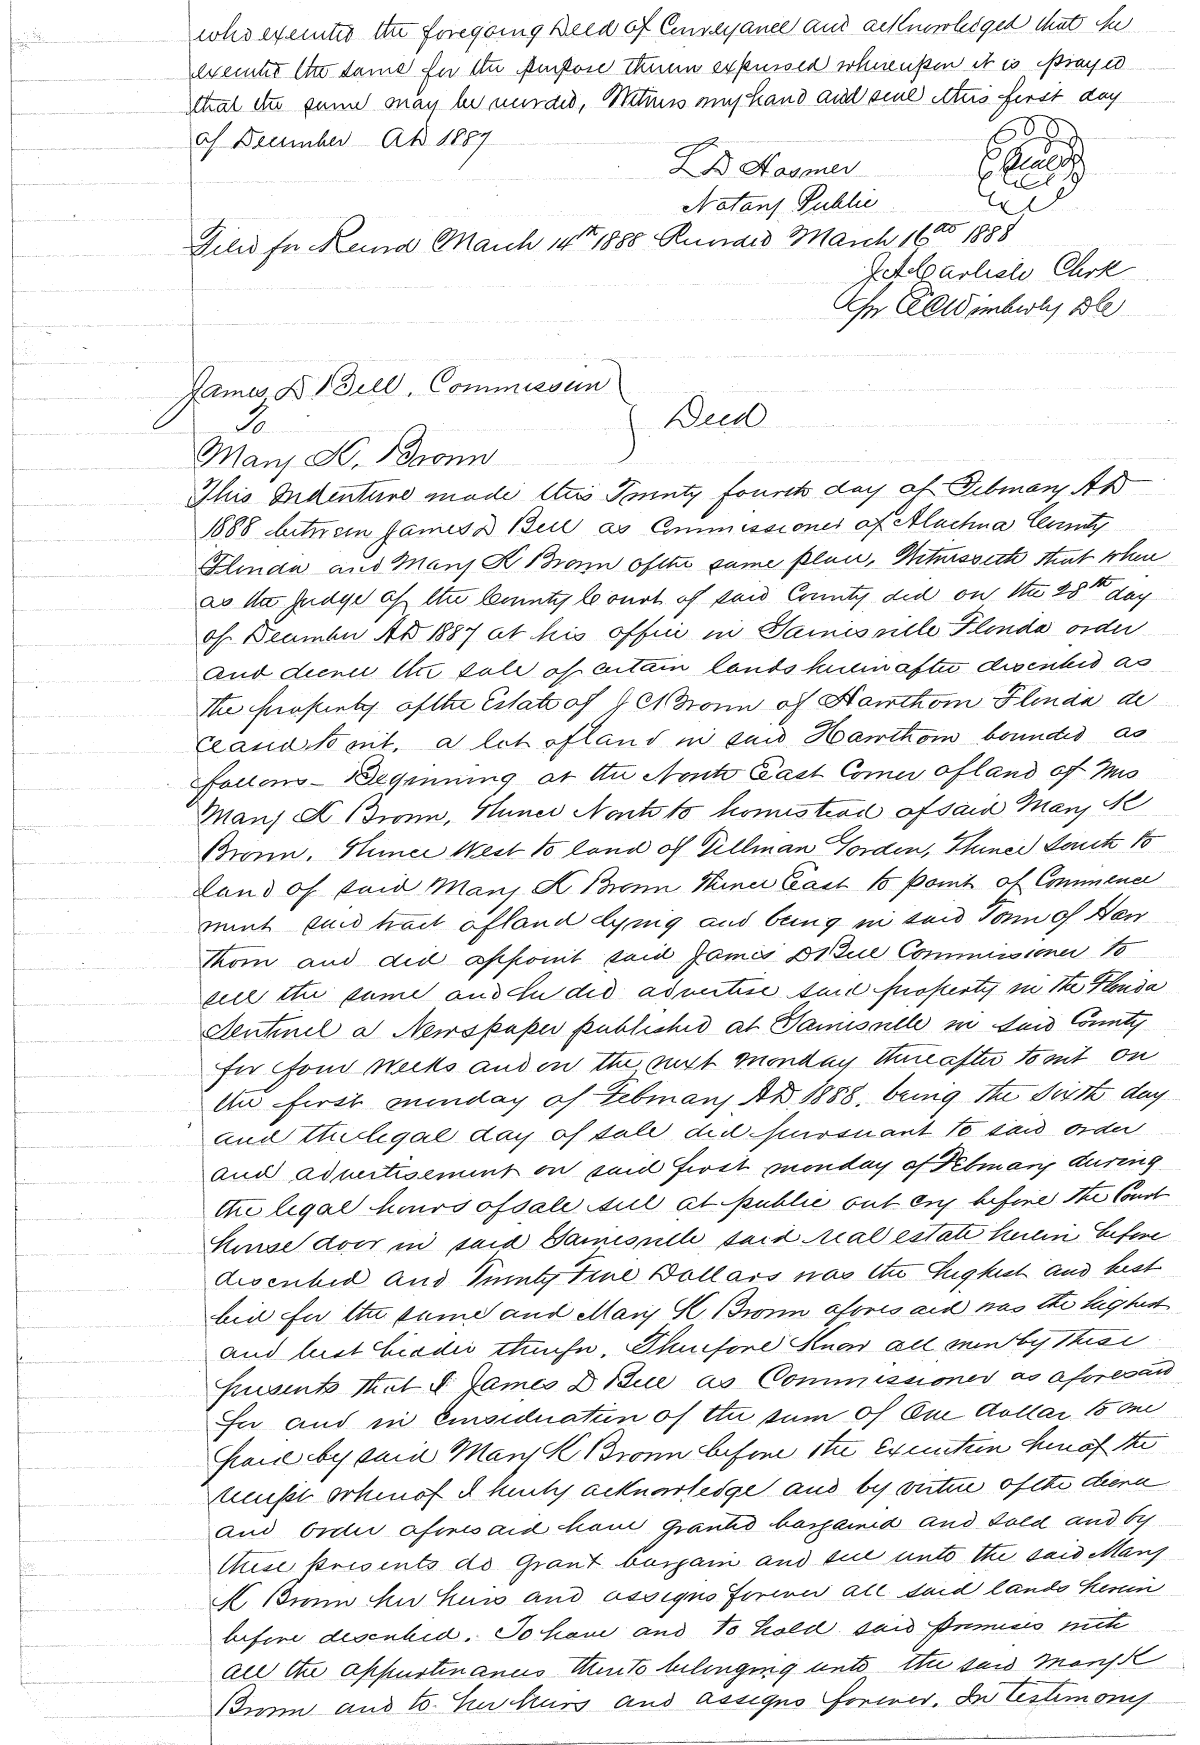 who executed the foregoing Deed of Conveyance and acknowledged that he
executed the same for the purpose therein expressed whereupon it is prayed
that the same may be recorded, Witness my hand and seal this first day
of December AD 1887
L D Hosmer
Seal
Notary Public
Filed for Record March 14th 1888 Recorded March 16th 1888
J A Carlisle Clerk
Per E C Wimberly DC
James D Bell, Commission
To
Deed
Mary K, Brown
This Indenture made this Twenty fourth day of February AD
1888 between James D Bell as Commissioner of Alachua County
Florida and Mary K Brown of the same place, Witnesseth that where
as the Judge of the County Court of said County did on the 28th day
of December AD 1887 at his office in Gainesville Florida order
and decree the sale of certain lands hereinafter described as
the property of the Estate of J C Brown of Hawthorn Florida de
ceased to wit, a lot of land in said Hawthorn bounded as
follows - Beginning at the North East Corner of land of Mrs
Mary K Brown, Thence North to homestead of said Mary K
Brown, Thence West to land of Tillman Gorden, Thence South to
land of said Mary K Brown Thence East to point of Commence
ment said tract of land lying and being in said Town of Haw
thorn and did appoint said James D Bell Commissioner to
sell the same and he did advertise said property in the Florida
Sentinel a Newspaper published at Gainesville in said County
for four weeks and on the next monday thereafter towit on
the first monday of February AD 1888, being the Sixth day
and the legal day of sale did pursuant to said order
and advertisement on said first monday of February during
the legal hours of sale sell at public out cry before the Court
house door in said Gainesville said real estate herein before
described and Twenty Five Dollars was the highest and best
bid for the same and Mary K Brown aforesaid was the highest
and best bidder therefor. Therefore Know all men by these
presents that I James D Bell as Commissioner as aforesaid
for and in consideration of the sum of One dollar to me
paid by said Mary K Brown before the Execution hereof the
receipt whereof I hereby acknowledge and by virtue of the decree
and order aforesaid have granted bargained and sold and by
these presents do Grant bargain and sell unto the said Mary
K Brown her heirs and assigns forever all said lands herein
before described. To have and to hold said premises with
all the appurtenances thereto belonging unto the said Mary K
Brown and to her heirs and assigns forever. In testimony